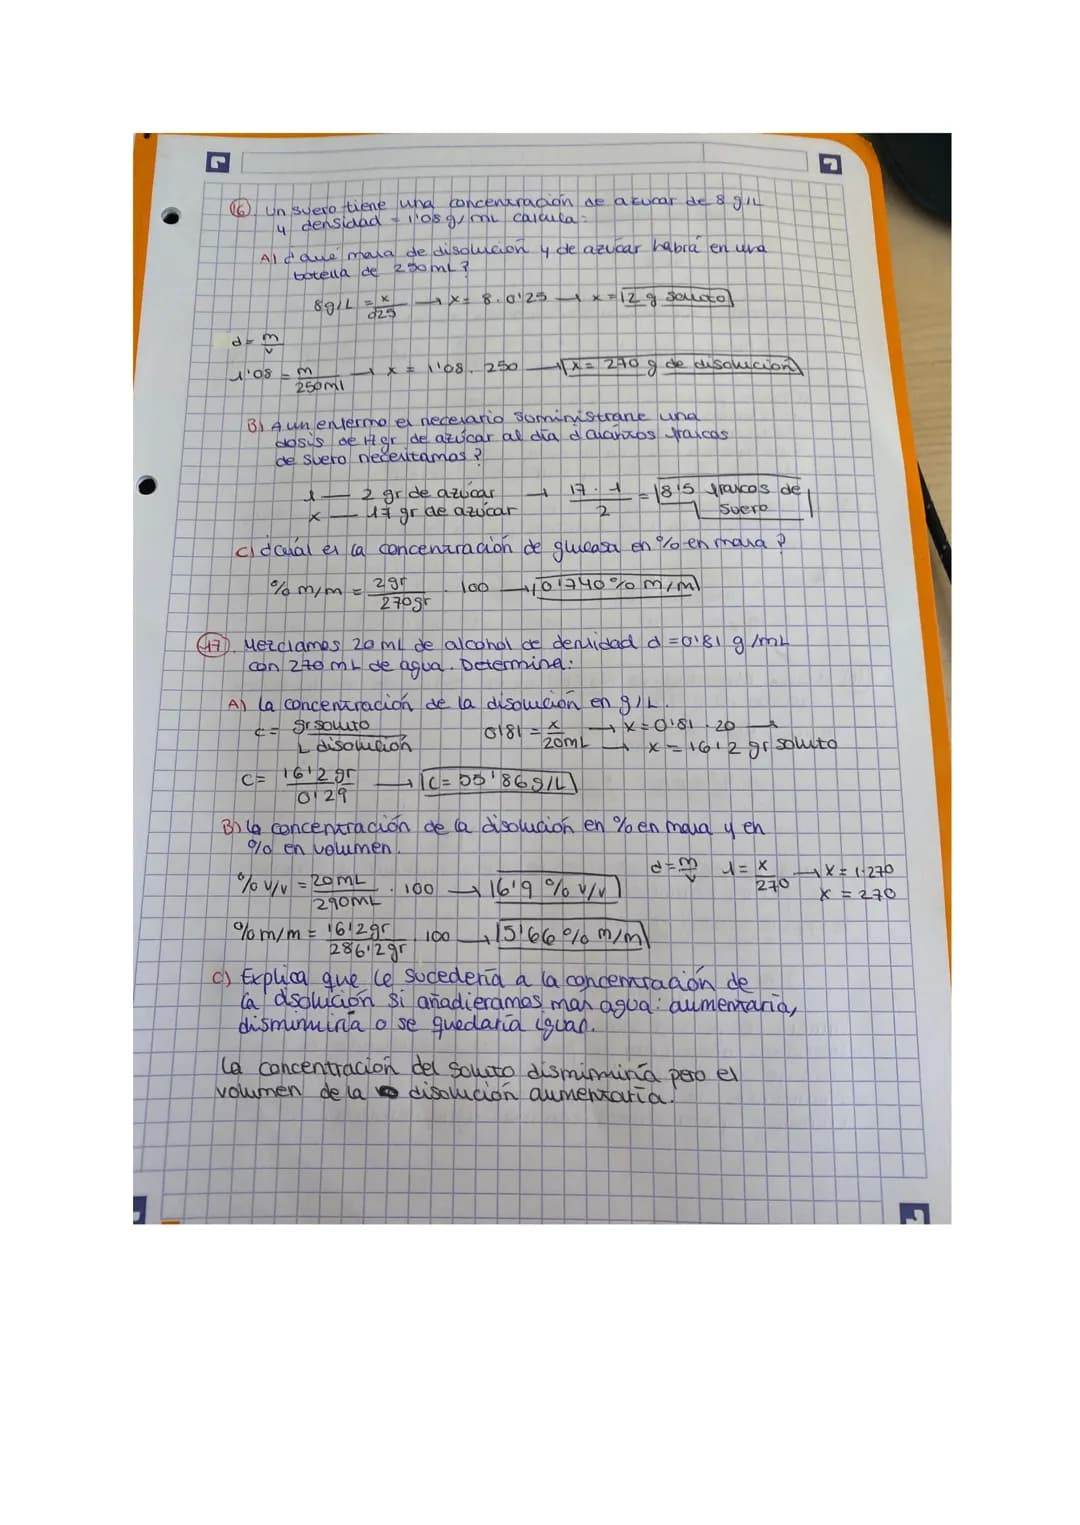 16) Un suero tiene una concentración de azucar de 8 g/L
y densidad = 1'08 g/mL calcula:
A) ¿que masa de disolución y de azúcar habrá en una
botella de 250mL?
8g/L = x/0'25 → x = 8·0'25 → x = 2 g soluto
d = m/v
1'08 = m/250ml → x = 1'08·250 → x = 270 g de disolución
B) A un enfermo es necesario suministrarle una
dosis de 17 gr de azúcar al día ¿cuántos frascos
de suero necesitamos?
1 — 2 gr de azúcar → 17·1/2 = 8'5 frascos de suero
x — 17 gr de azúcar
C) ¿cuál es la concentración de glucosa en % en masa?
% m/m = 2gr/270gr · 100 → 0'740% m/m
17). Mezclamos 20 mL de alcohol de densidad d = 0'81 g/mL
con 270 mL de agua. Determina:
A) la concentración de la disolución en g/L.
c = gr soluto/L disolución 0'81 = x/20mL → x = 0'81·20 →
→ x = 16'2 gr soluto
C = 16'2 gr/0'29 → C = 55'86 g/L
B) la concentración de la disolución en % en masa y en
% en volumen.
d = m/v 1 = x/270 → x = 1·270
x = 270
% v/v = 20mL/290mL · 100 → 16'9 % v/v
% m/m = 16'2gr/286'2gr · 100 → 5'66 % m/m
C) Explica que le sucedería a la concentración de
la dsolución si añadieramos mas agua: aumentaría,
disminuiría o se quedaría igual.
La concentración del soluto disminuiría pero el
volumen de la disolución aumentaría.